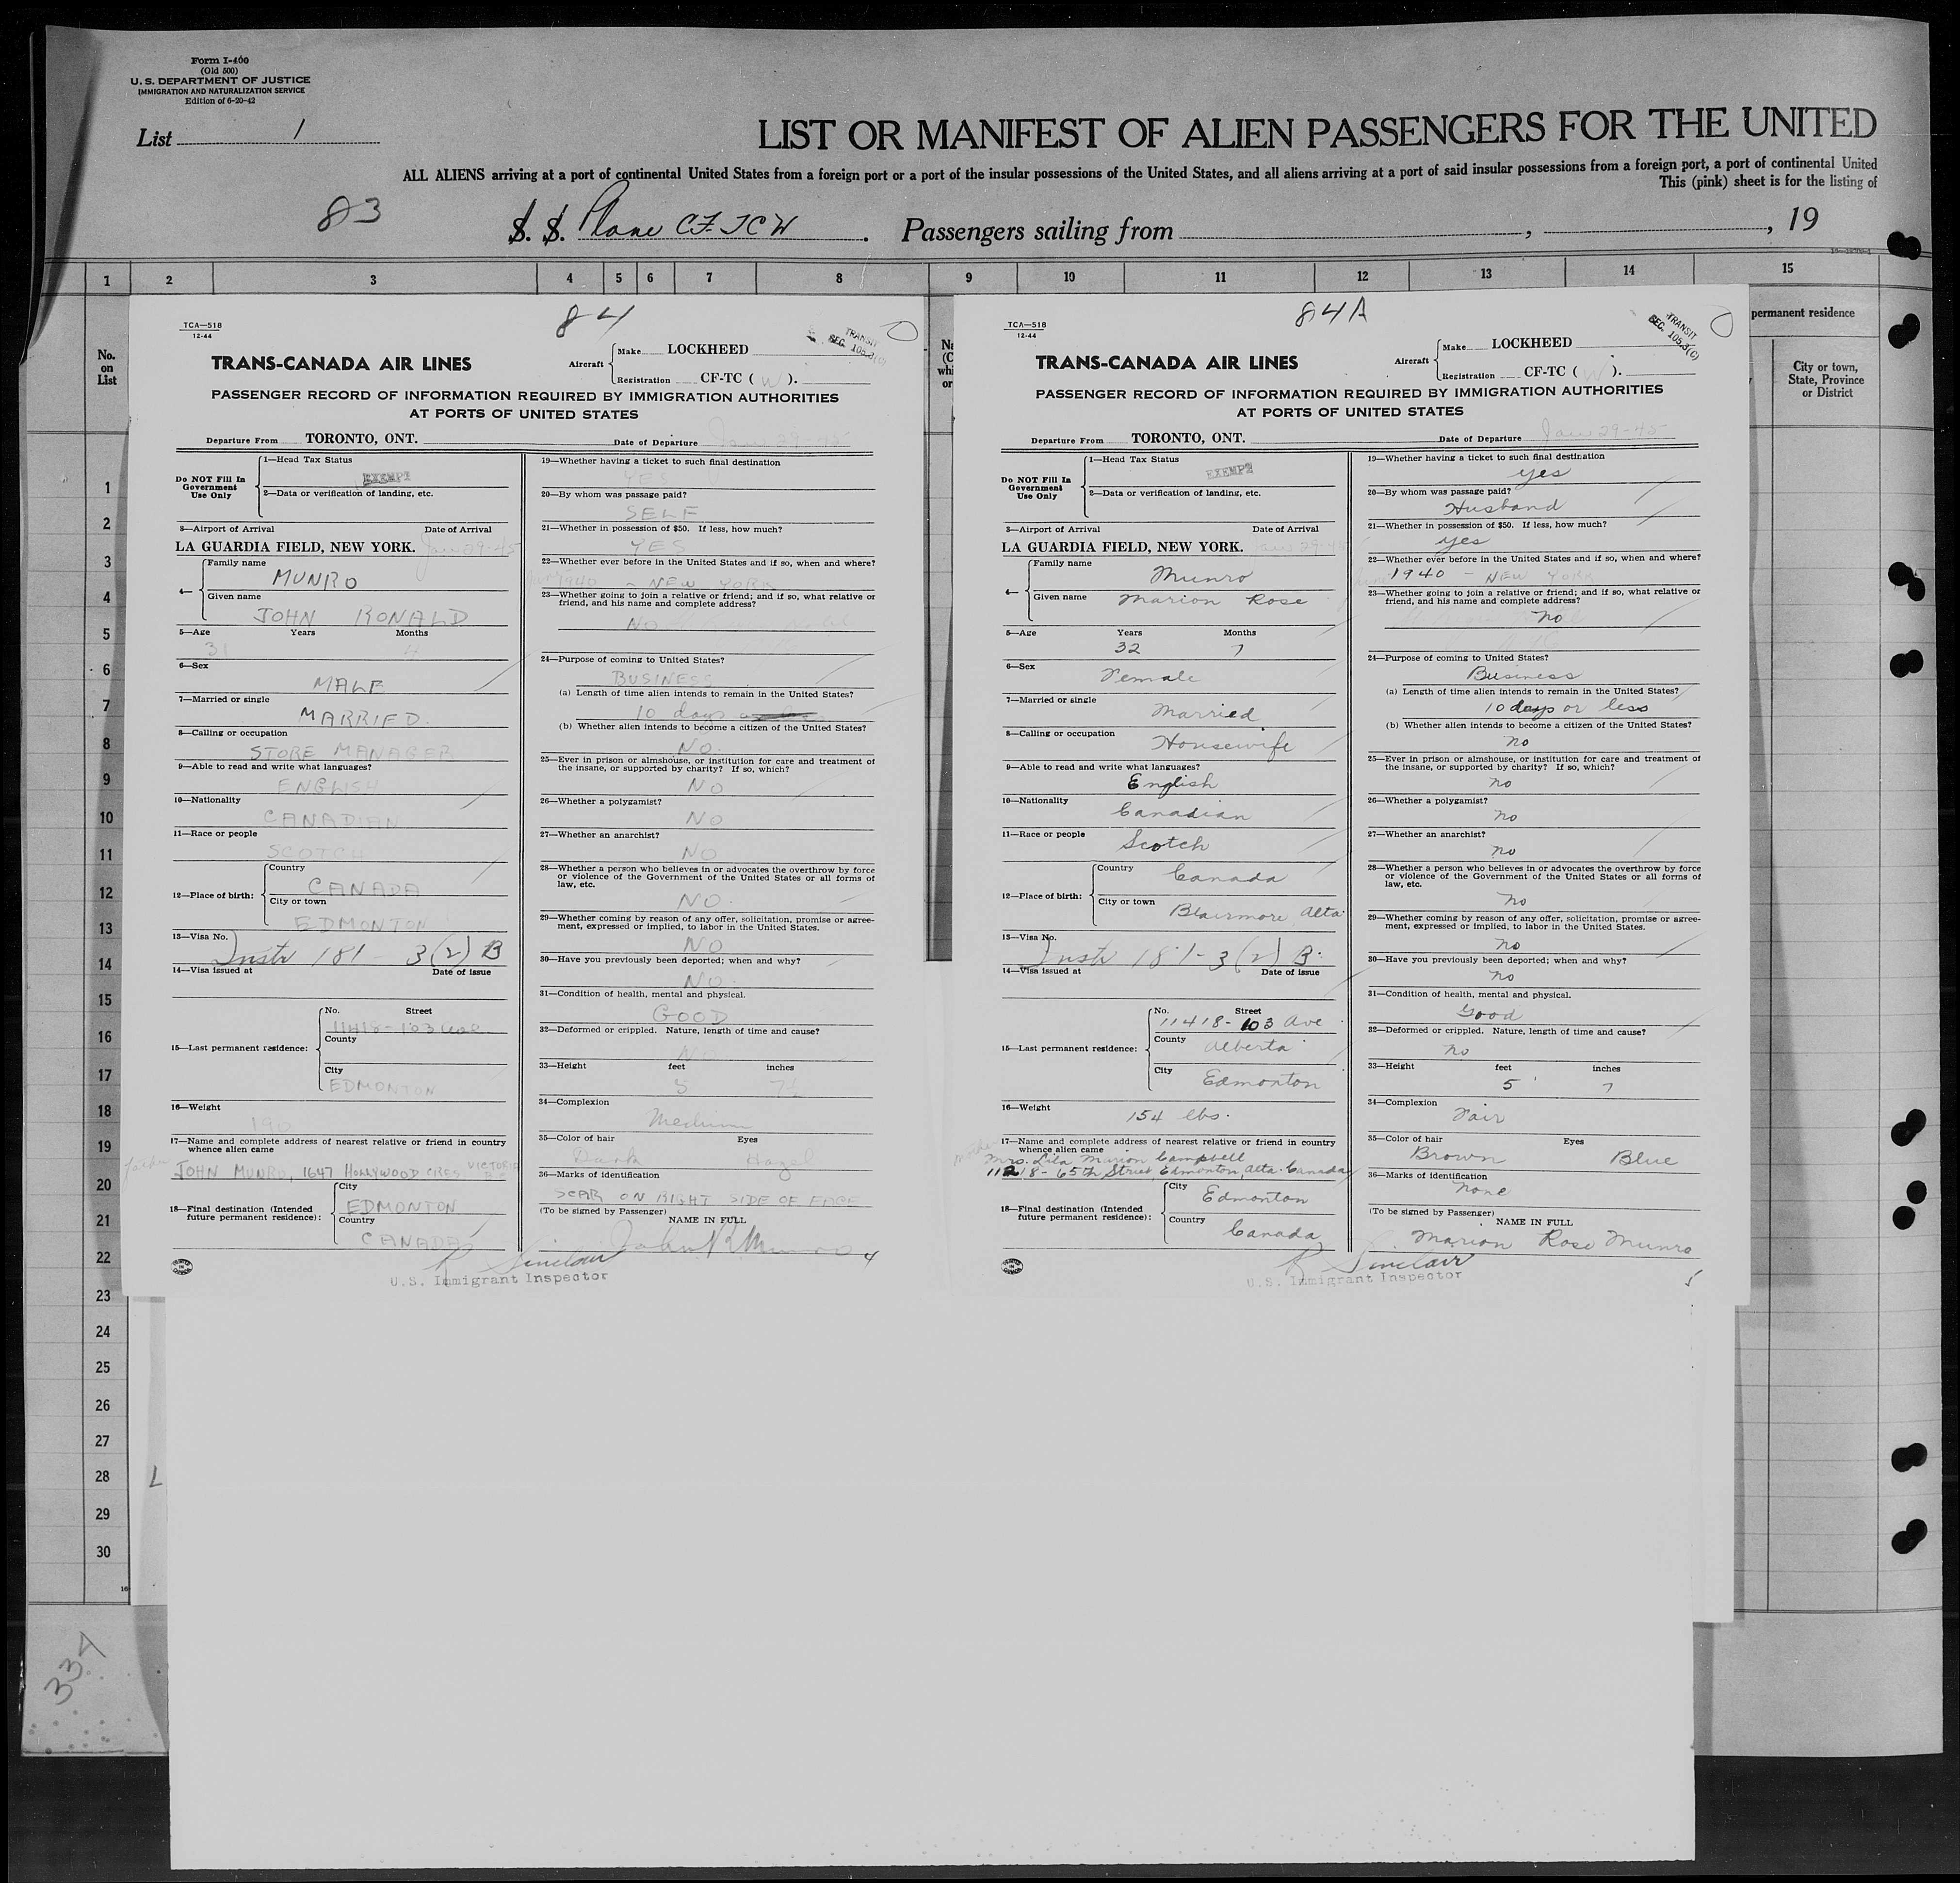 Form I-400
(Old 500)
U. S. DEPARTMENT OF JUSTICE
IMMIGRATION AND NATURALIZATION SERVICE
Edition of 6-20-42
List 1
LIST OR MANIFEST OF ALIEN PASSENGERS FOR THE UNITED
ALL ALIENS arriving at a port of continental United States from a foreign port or a port of the insular possessions of the United States, and all aliens arriving at a port of said insular possessions from a foreign port, a port of continental United
This (pink) sheet is for the listing of
83
S. S. Plane CF-TCW. Passengers sailing from , , 19
1 2 3 4 5 6 7 8 9 10 11 12 13 14 15
No. on List
permanent residence
City or town, State, Province or District
1
2
3
4
5
6
7
8
9
10
11
12
13
14
15
16
17
18
19
20
21
22
23
24
25
26
27
28
29
30
337
84
TCA—518
12-44
TRANSIT
SEC. 105.3(C)
TRANS-CANADA AIR LINES
Aircraft Make LOCKHEED
Registration CF-TC ( W ).
PASSENGER RECORD OF INFORMATION REQUIRED BY IMMIGRATION AUTHORITIES
AT PORTS OF UNITED STATES
Departure From TORONTO, ONT. Date of Departure Jan 29-45
Do NOT Fill In Government Use Only
1—Head Tax Status
EXEMPT
2—Data or verification of landing, etc.
3—Airport of Arrival Date of Arrival
LA GUARDIA FIELD, NEW YORK. Jan 29-45
4— Family name
MUNRO
Given name
JOHN RONALD
5—Age Years Months
31 4
6—Sex
MALE
7—Married or single
MARRIED
8—Calling or occupation
STORE MANAGER
9—Able to read and write what languages?
ENGLISH
10—Nationality
CANADIAN
11—Race or people
SCOTCH
12—Place of birth: Country
CANADA
City or town
EDMONTON
13—Visa No.
Instr 181 - 3(2) B
14—Visa issued at Date of issue
15—Last permanent residence: No. Street
11418-103 ave
County
City
EDMONTON
16—Weight
190
17—Name and complete address of nearest relative or friend in country
whence alien came
father JOHN MUNRO, 1647 HOLLYWOOD CRES VICTORIA
18—Final destination (Intended
future permanent residence): City
EDMONTON
Country
CANADA
19—Whether having a ticket to such final destination
YES
20—By whom was passage paid?
SELF
21—Whether in possession of $50. If less, how much?
YES
22—Whether ever before in the United States and if so, when and where?
1940 - NEW YORK
23—Whether going to join a relative or friend; and if so, what relative or
friend, and his name and complete address?
NO
24—Purpose of coming to United States?
BUSINESS
(a) Length of time alien intends to remain in the United States?
10 days
(b) Whether alien intends to become a citizen of the United States?
NO.
25—Ever in prison or almshouse, or institution for care and treatment of
the insane, or supported by charity? If so, which?
NO
26—Whether a polygamist?
NO
27—Whether an anarchist?
NO
28—Whether a person who believes in or advocates the overthrow by force
or violence of the Government of the United States or all forms of
law, etc.
NO.
29—Whether coming by reason of any offer, solicitation, promise or agree-
ment, expressed or implied, to labor in the United States.
NO
30—Have you previously been deported; when and why?
NO.
31—Condition of health, mental and physical.
GOOD
32—Deformed or crippled. Nature, length of time and cause?
NO
33—Height feet inches
5 7½
34—Complexion
Medium
35—Color of hair Eyes
Dark Hazel
36—Marks of identification
SCAR ON RIGHT SIDE OF FACE
(To be signed by Passenger)
NAME IN FULL
John R Munro
4
R Sinclair
U.S. Immigrant Inspector
84A
TCA—518
12-44
TRANSIT
SEC. 105.3(C)
TRANS-CANADA AIR LINES
Aircraft Make LOCKHEED
Registration CF-TC ( W ).
PASSENGER RECORD OF INFORMATION REQUIRED BY IMMIGRATION AUTHORITIES
AT PORTS OF UNITED STATES
Departure From TORONTO, ONT. Date of Departure Jan 29-45
Do NOT Fill In Government Use Only
1—Head Tax Status
EXEMPT
2—Data or verification of landing, etc.
3—Airport of Arrival Date of Arrival
LA GUARDIA FIELD, NEW YORK. Jan 29-45
4— Family name
Munro
Given name Marion Rose
5—Age Years Months
32 7
6—Sex
Female
7—Married or single
Married
8—Calling or occupation
Housewife
9—Able to read and write what languages?
English
10—Nationality
Canadian
11—Race or people
Scotch
12—Place of birth: Country
Canada
City or town
Blairmore Alta.
13—Visa No.
Instr 181-3(2) B.
14—Visa issued at Date of issue
15—Last permanent residence: No. Street
11418-103 Ave
County
Alberta
City
Edmonton
16—Weight
154 lbs.
17—Name and complete address of nearest relative or friend in country
whence alien came
mother Mrs. Lila Marion Campbell
11218-65th Street, Edmonton, Alta. Canada
18—Final destination (Intended
future permanent residence): City
Edmonton
Country
Canada
19—Whether having a ticket to such final destination
yes
20—By whom was passage paid?
Husband
21—Whether in possession of $50. If less, how much?
yes
22—Whether ever before in the United States and if so, when and where?
1940 - NEW YORK
23—Whether going to join a relative or friend; and if so, what relative or
friend, and his name and complete address?
no
24—Purpose of coming to United States?
Business
(a) Length of time alien intends to remain in the United States?
10 days or less
(b) Whether alien intends to become a citizen of the United States?
no
25—Ever in prison or almshouse, or institution for care and treatment of
the insane, or supported by charity? If so, which?
no
26—Whether a polygamist?
no
27—Whether an anarchist?
no
28—Whether a person who believes in or advocates the overthrow by force
or violence of the Government of the United States or all forms of
law, etc.
no
29—Whether coming by reason of any offer, solicitation, promise or agree-
ment, expressed or implied, to labor in the United States.
no
30—Have you previously been deported; when and why?
no
31—Condition of health, mental and physical.
Good
32—Deformed or crippled. Nature, length of time and cause?
no
33—Height feet inches
5 7
34—Complexion
Fair
35—Color of hair Eyes
Brown Blue
36—Marks of identification
none
(To be signed by Passenger)
NAME IN FULL
Marion Rose Munro
R Sinclair
U.S. Immigrant Inspector
5